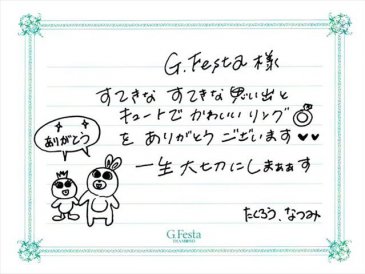 G.Festa 様
すてきな すてきな 思い出と
キュートで かわいい リング
を ありがとう ございます♥♥
一生 大切にしまぁぁす
ありがとう
たくろう、なつみ
G.Festa